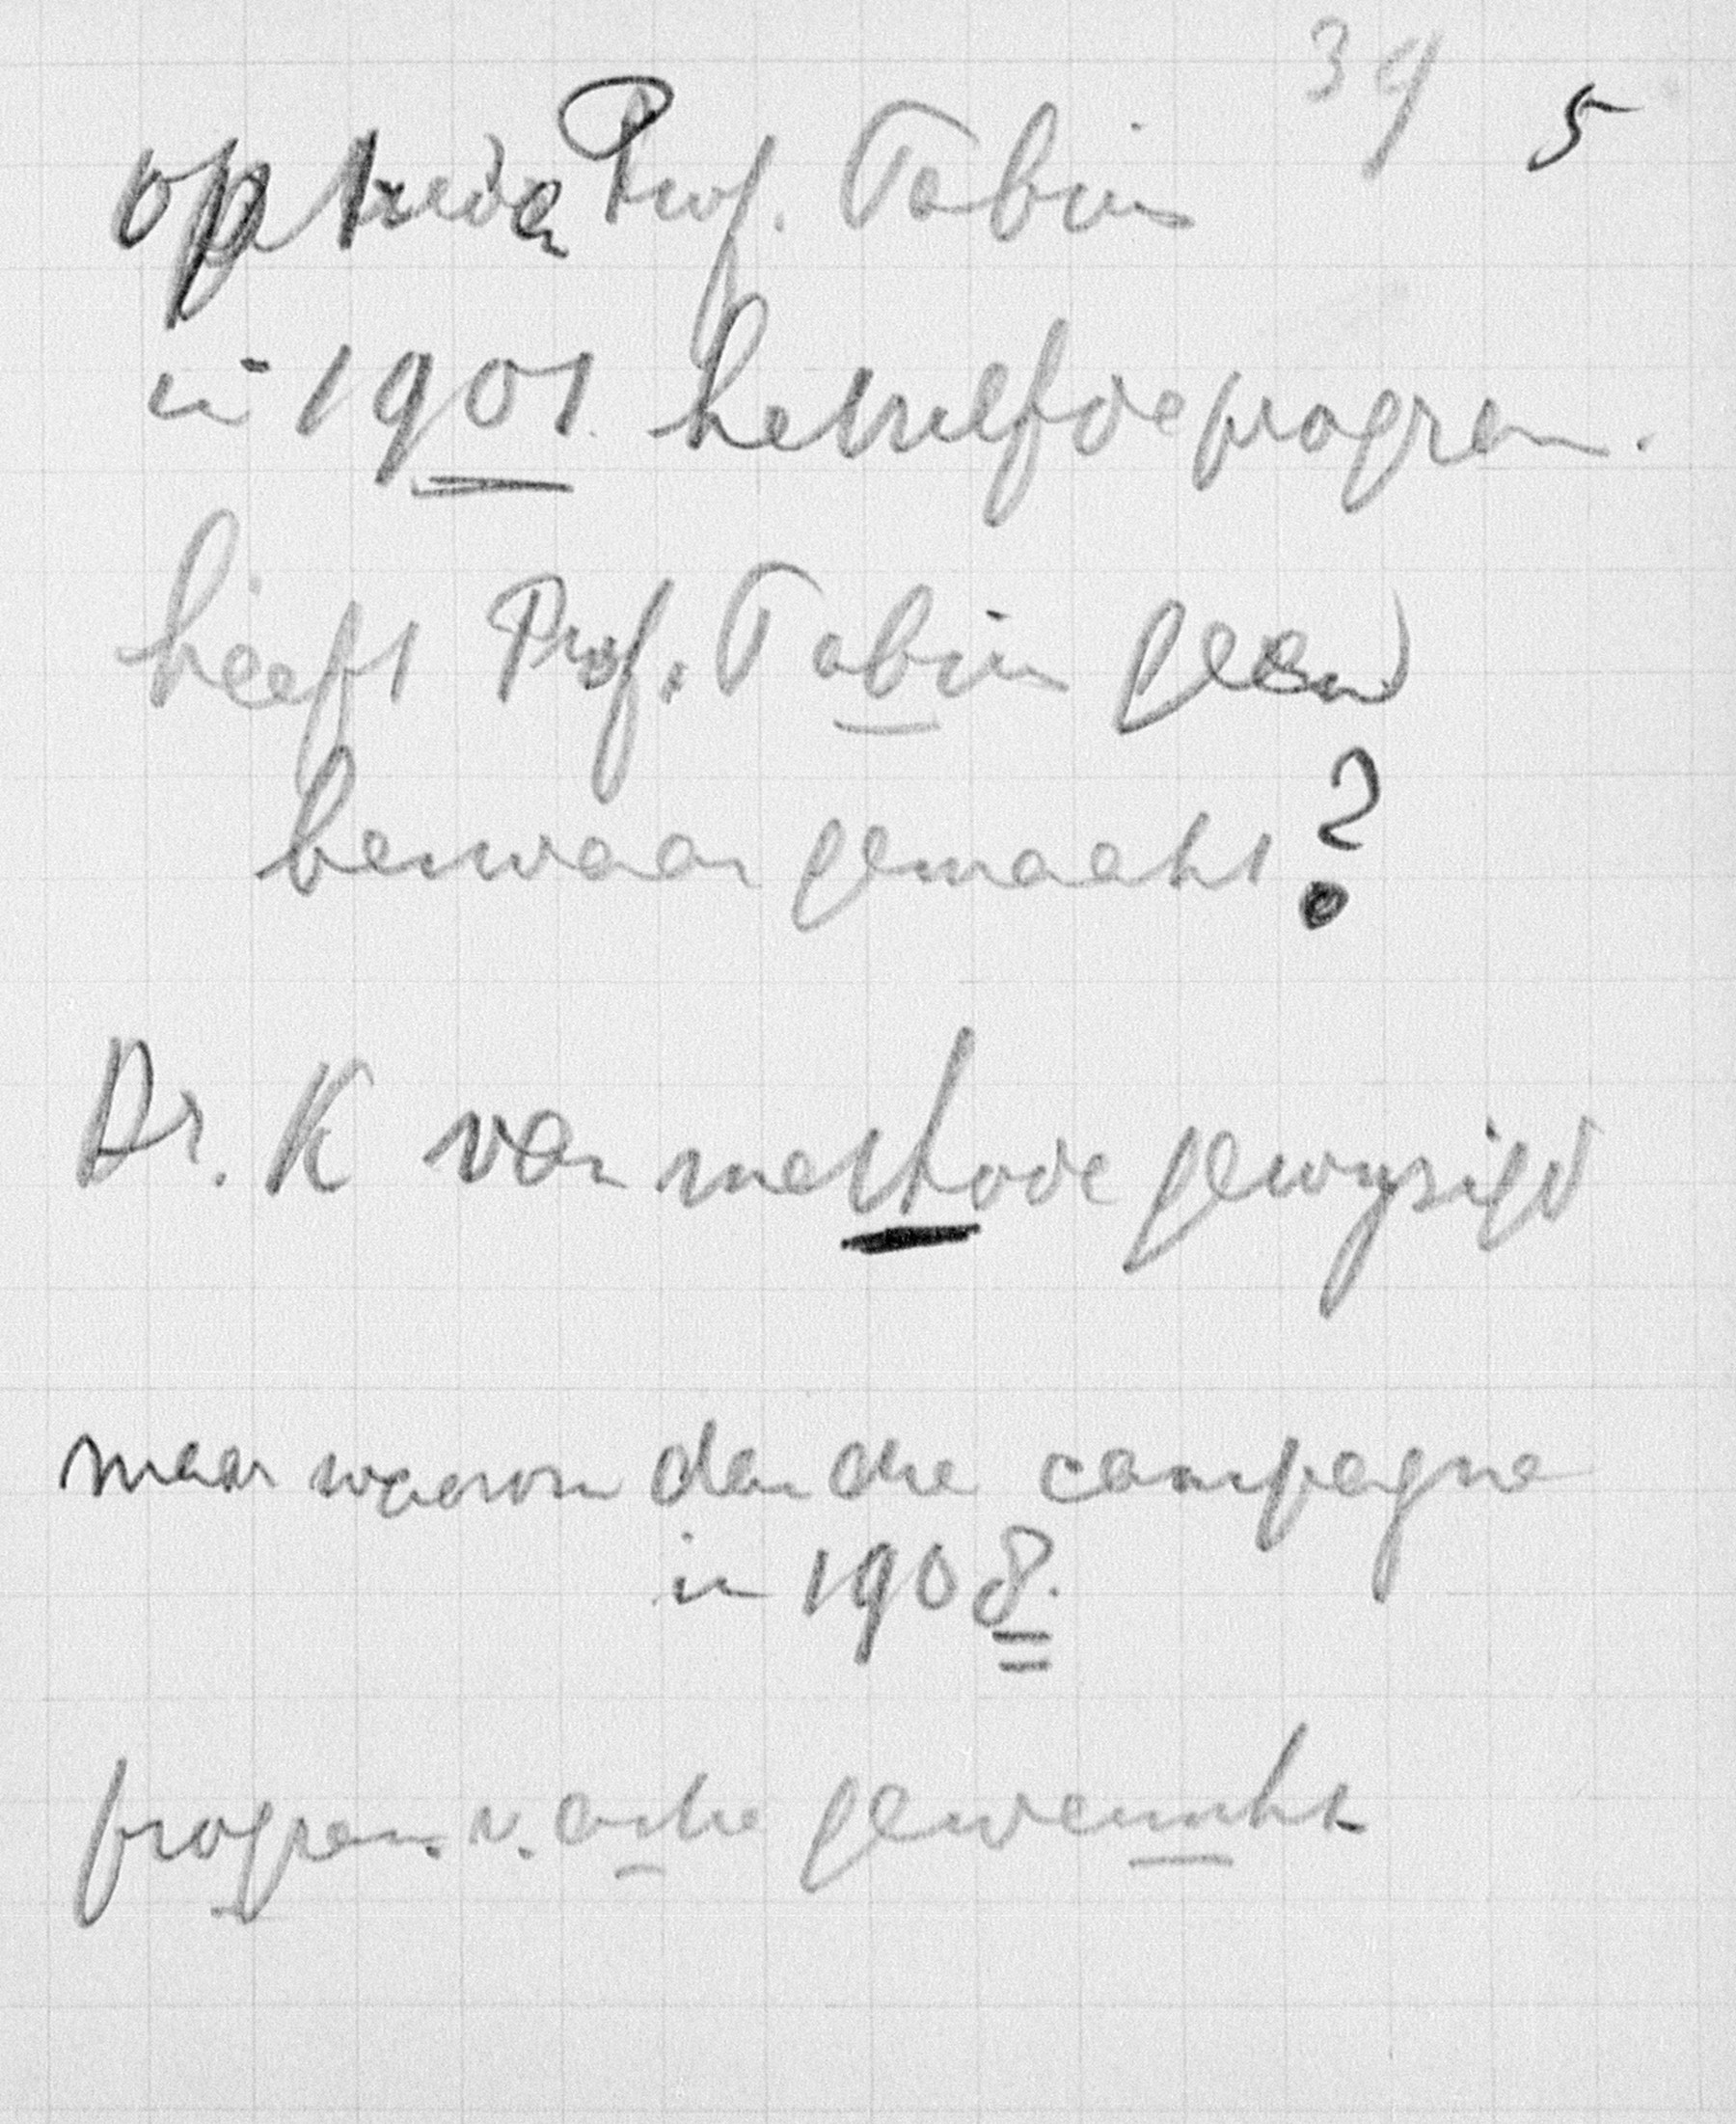 39 5
optreden Prof. Fabius
in 1901. hetzelfde program.
heeft Prof. Fabius geen
bezwaar gemaakt?
Dr. K van methode gewyzigd
maar waarom dan die campagne
in 1908.
program. v. actie gewenscht